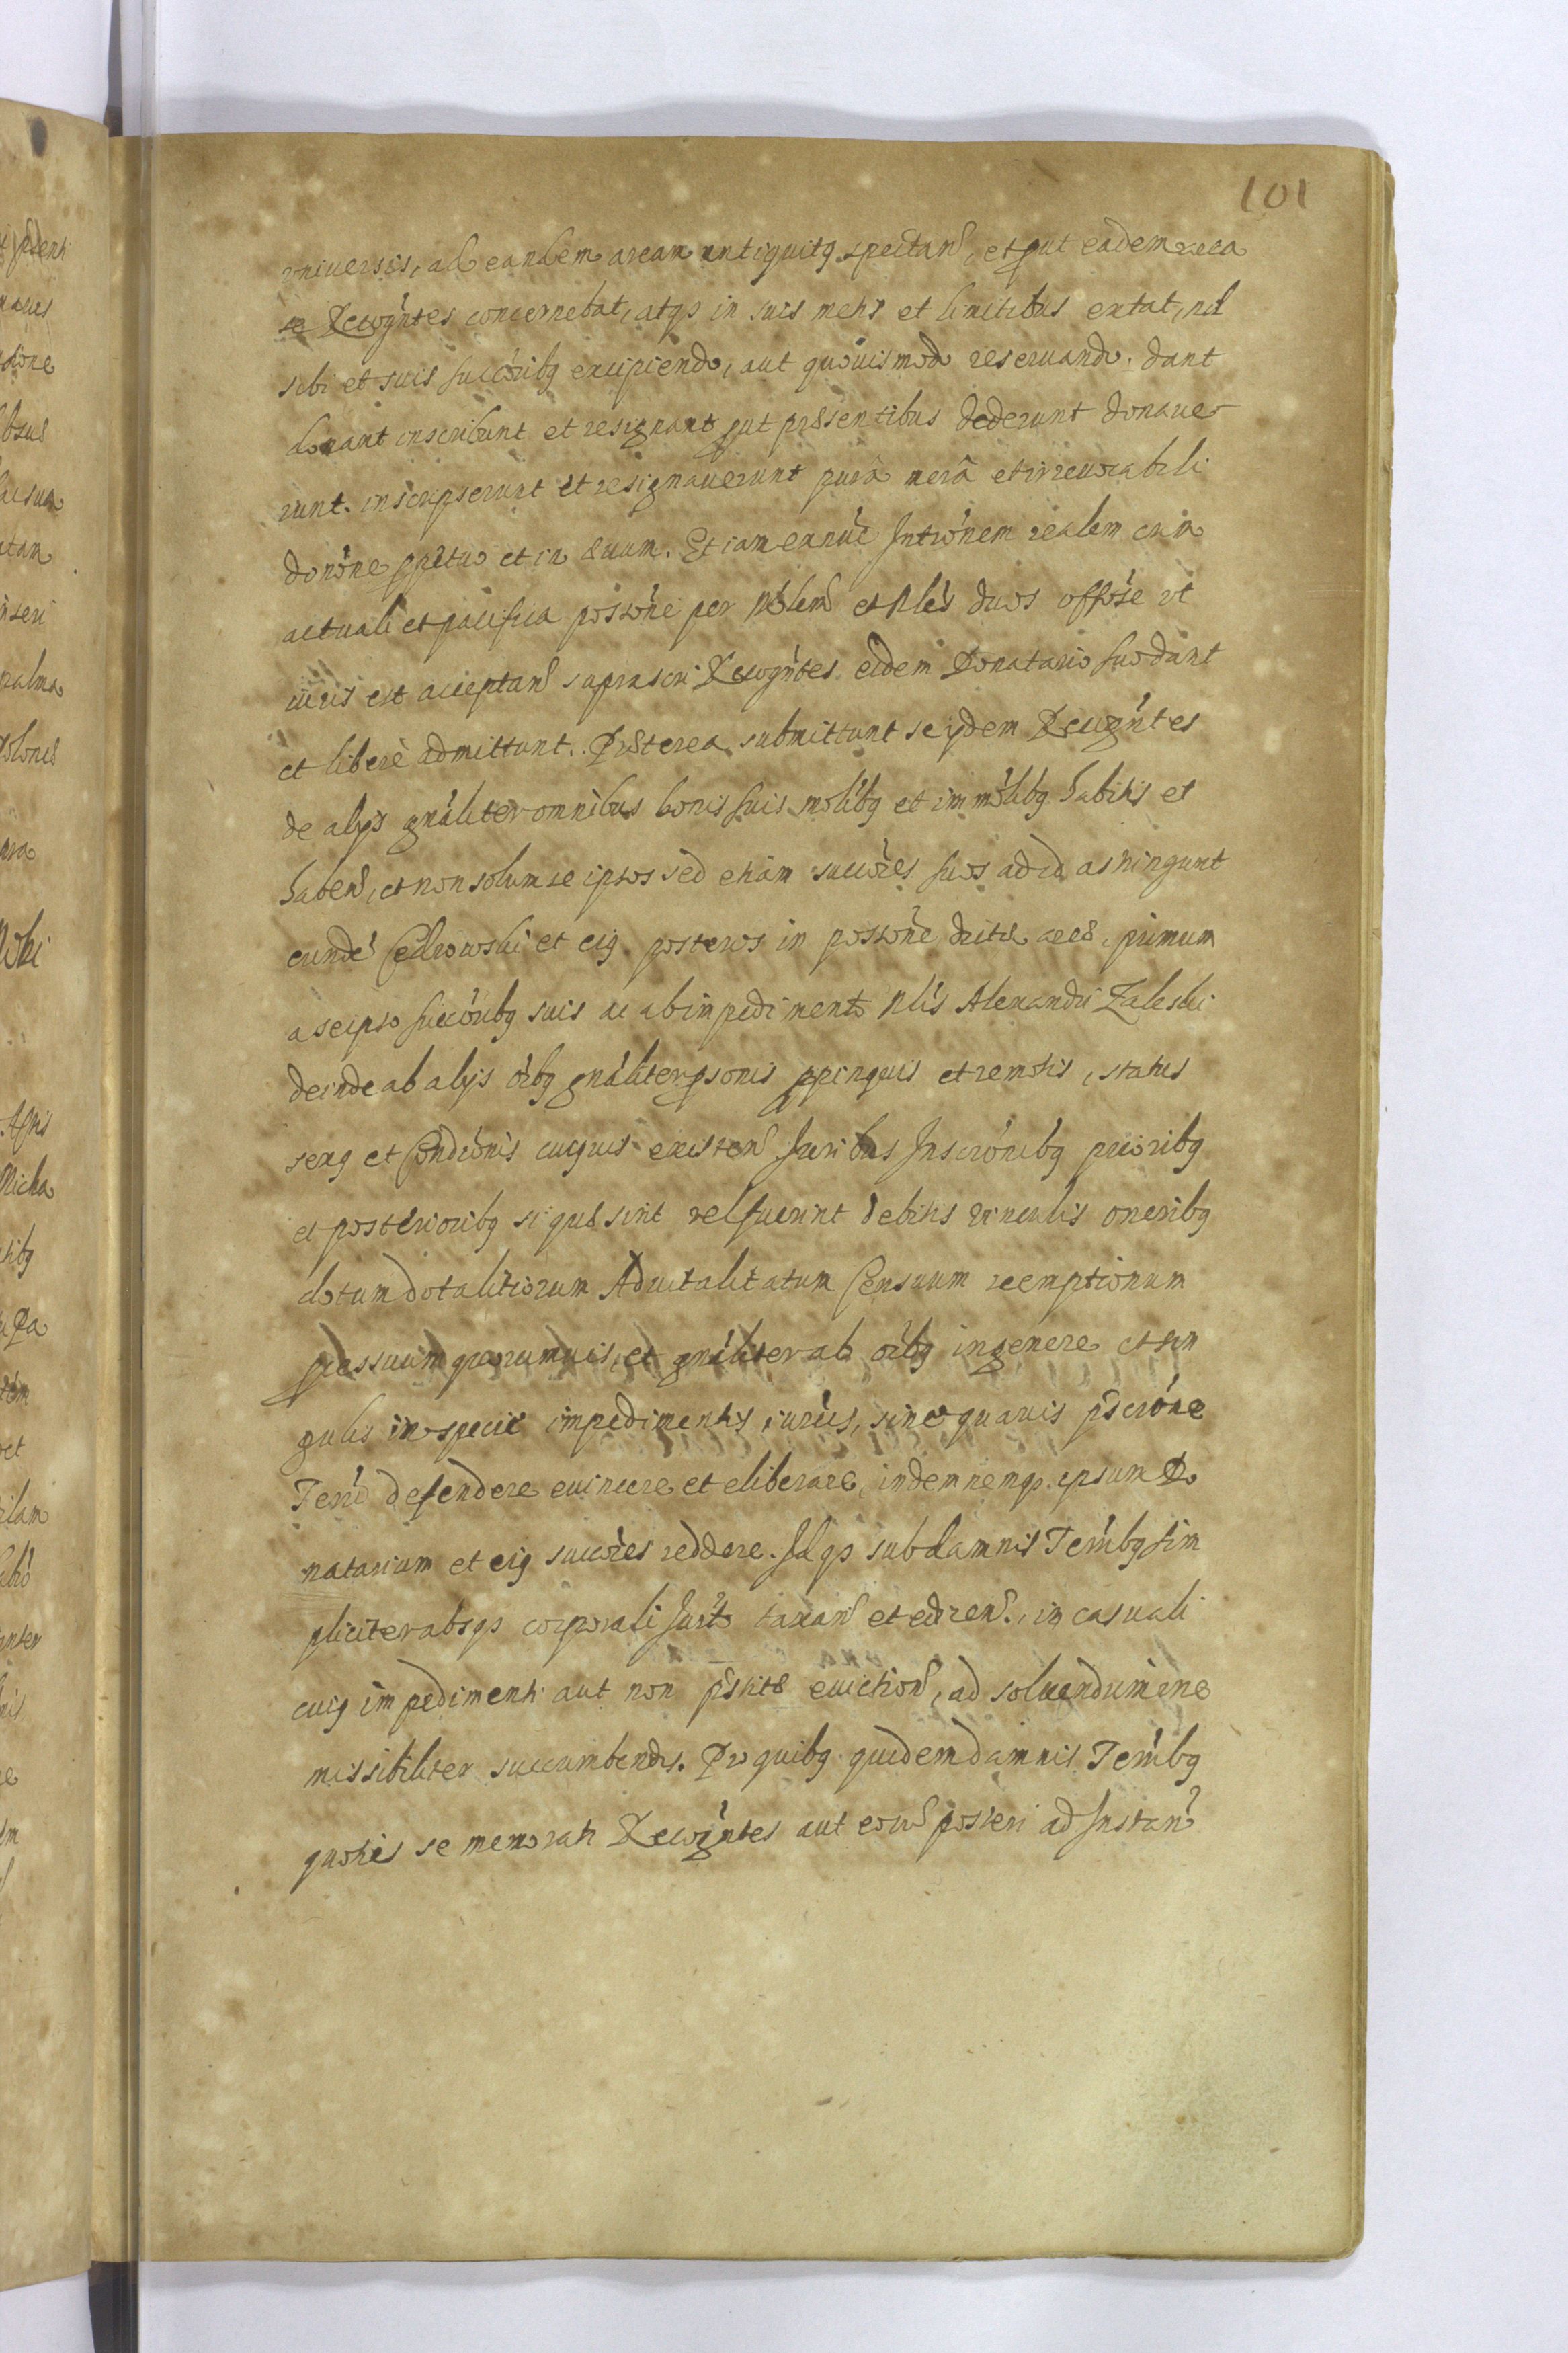 101
vniuersis, ad eandem aream antiquitg spectan, et put eadem area
se Recogntes concernebat, atqz in suis metis et limitibus extat, nil
sibi et suis succoribg excipiendo, aut quouismodo reseruando. dant
donant inscribunt et resignant put præsentibus dederunt donaue
runt. inscripserunt et resignauerunt purâ merâ et irreuocabili
donone ppetuo et in æuum. Et iam exnuc Intronem realem cum
actuali et pacifica possone per Noblem et Nles duos offose vt
iuris est acceptan suprascri Recogntes eidem Donatario suo dant
et liberè admittunt. Præterea submittunt se ijdem Recogntes
de alijs gnaliter omnibus bonis suis molibg et immolibg habitis et
haben, et non solum se ipsos sed etiam succores suos ad id astringunt
eunde Cedrowski et eig posteros in possone dictæ areæ, primum
a seipso succoribg suis ac ab impedimento Nlis Alexandri Zaleski
deinde ab alijs oibg gnaliter psonis ppinquis et remotis, status
sexg et Condionis cuiquis existen Juribus Inscronibg prioribg
et posterioribg si quæ sint vel fuerint debitis vinculis oneribg
dotum dotalitiorum Aduitalitatum Censuum reemptionum
pcessuum quorumuis, et gnaliter ab oibg in genere et sin
gulis in specie impedimentis iuris, sine quauis pscrone
Terri defendere euincere et eliberare, indemnemqz ipsum Do
natarium et eig succores reddere. Idqz sub damnis Terribg sim
pliciter absqz corporali Jurto taxan et edicen., in casu ali
cuig impedimenti aut non pstitæ euiction, ad soluendum ine
missibiliter succumbendis. Pro quibg quidem damnis Terribg
quoties se memorati Recogntes aut eoru posteri ad Instan